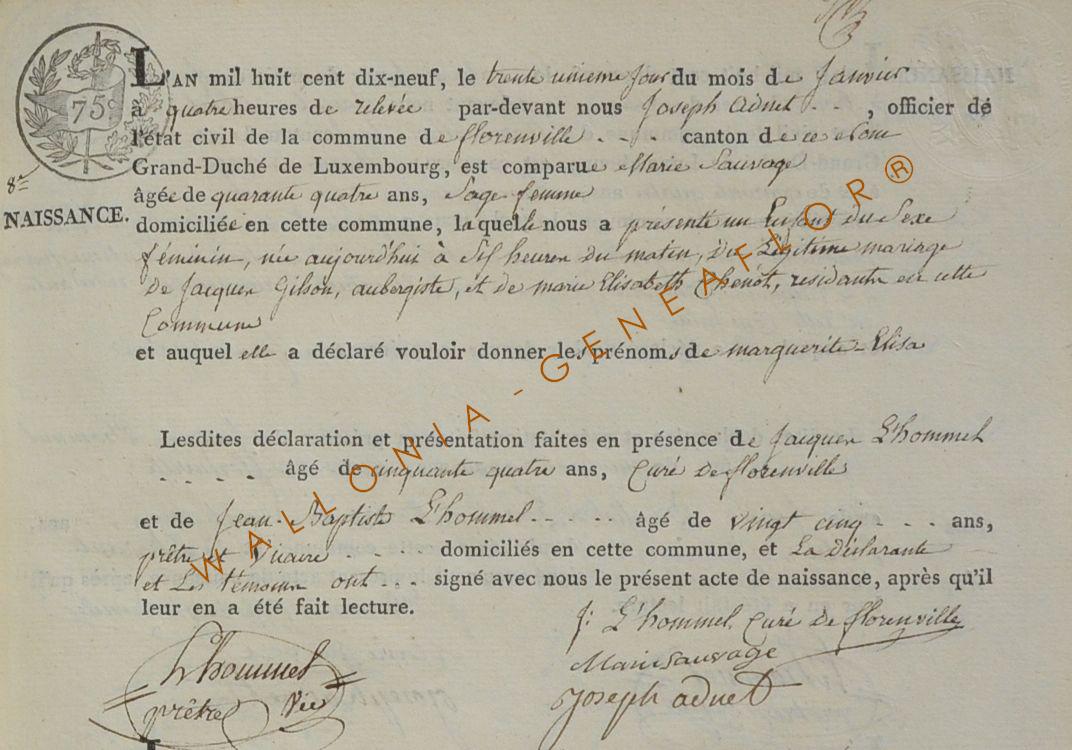 75c
L'AN mil huit cent dix-neuf, le trente unieme jour du mois de Janvier
à quatre heures de relevée par-devant nous Joseph adnet - - , officier de
l'état civil de la commune de florenville - - - canton de ce nom
Grand-Duché de Luxembourg, est comparue Marie Sauvage
âgée de quarante quatre ans, Sage femme
8e
NAISSANCE.
domiciliée en cette commune, laquelle nous a présenté un Enfant du Sexe
féminin, née aujourd'hui à Six heures du matin, du Légitime mariage
de Jacques Gilson, aubergiste, et de marie Elisabeth Thénot, residants en cette
Commune
et auquel elle a déclaré vouloir donner les prénoms de marguerite-Elisa
Lesdites déclaration et présentation faites en présence de Jacques L'hommel
- - - - - âgé de cinquante quatre ans, Curé de florenville
et de Jean-Baptiste L'hommel - - - - - âgé de vingt cinq - - - ans,
prêtre et Vicaire - - - domiciliés en cette commune, et La Déclarante
et Les témoins ont - - - signé avec nous le présent acte de naissance, après qu'il
leur en a été fait lecture.
J: L'hommel Curé de florenville
L'hommel
prêtre Vic
Marie sauvage
Joseph adnet
WALLONIA-GENEAFLOR®